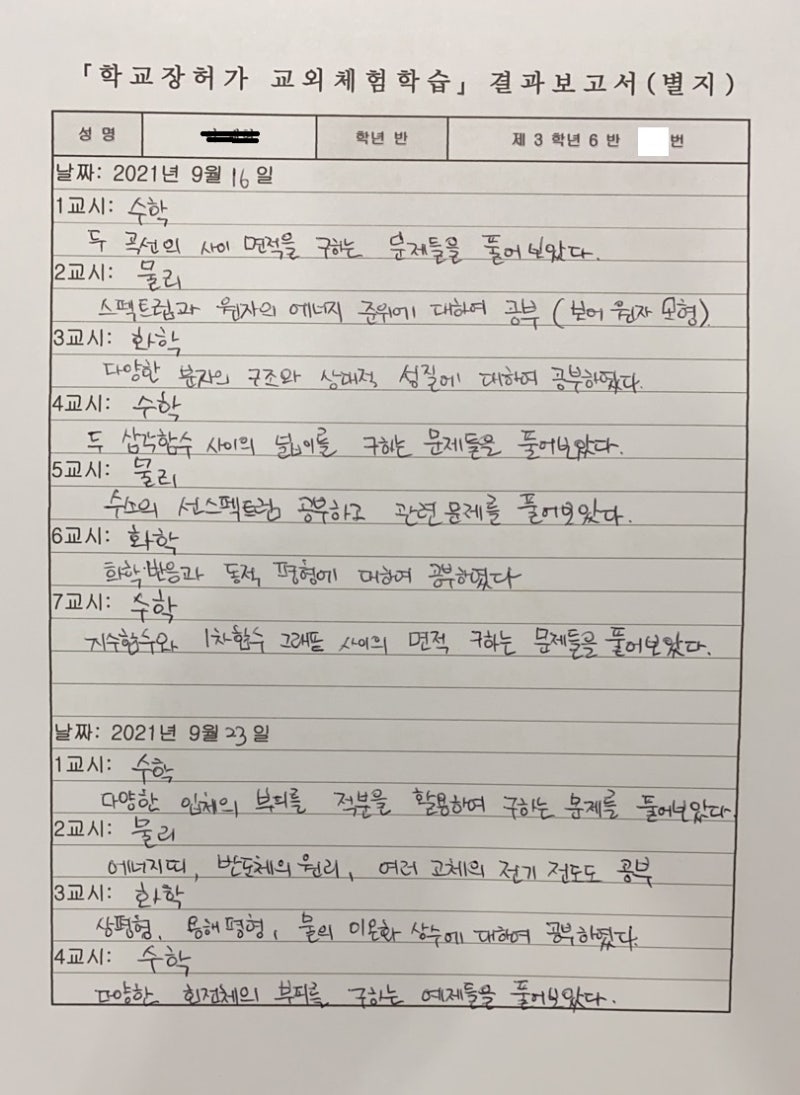 「학교장허가 교외체험학습」 결과보고서(별지)
성명 학년 반 제 3 학년 6 반 번
날짜: 2021년 9월 16일
1교시: 수학
두 곡선의 사이 면적을 구하는 문제들을 풀어보았다.
2교시: 물리
스펙트럼과 원자의 에너지 준위에 대하여 공부 (보어 원자 모형)
3교시: 화학
다양한 분자의 구조와 상대적 성질에 대하여 공부하였다.
4교시: 수학
두 삼각함수 사이의 넓이를 구하는 문제들을 풀어보았다.
5교시: 물리
수소의 선스펙트럼 공부하고 관련문제를 풀어보았다.
6교시: 화학
화학반응과 동적 평형에 대하여 공부하였다
7교시: 수학
지수함수와 1차함수 그래프 사이의 면적 구하는 문제들을 풀어보았다.
날짜: 2021년 9월 23일
1교시: 수학
다양한 입체의 부피를 적분을 활용하여 구하는 문제를 풀어보았다.
2교시: 물리
에너지띠, 반도체의 원리, 여러 고체의 전기 전도도 공부
3교시: 화학
상평형, 용해평형, 물의 이온화 상수에 대하여 공부하였다.
4교시: 수학
다양한 회전체의 부피를 구하는 예제들을 풀어보았다.